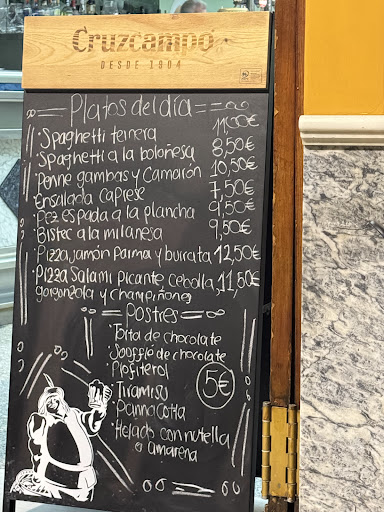 Cruzcampo
DESDE 1904
Platos del día
Spaghetti terrera 11,00€
Spaghetti a la boloñesa 8,50€
Penne gambas y Camarón 10,50€
Ensalada Caprese 7,50€
Pez espada a la plancha 9,50€
Bistec a la milanesa 9,50€
Pizza jamón Parma y burrata 12,50€
Pizza Salami Picante, Cebolla, 11,50€
gorgonzola y champiñones
Postres
Torta de chocolate
Soufflé de chocolate
Profiterol
Tiramisú
Panna Cotta
5€
Helado con nutella
o amarena